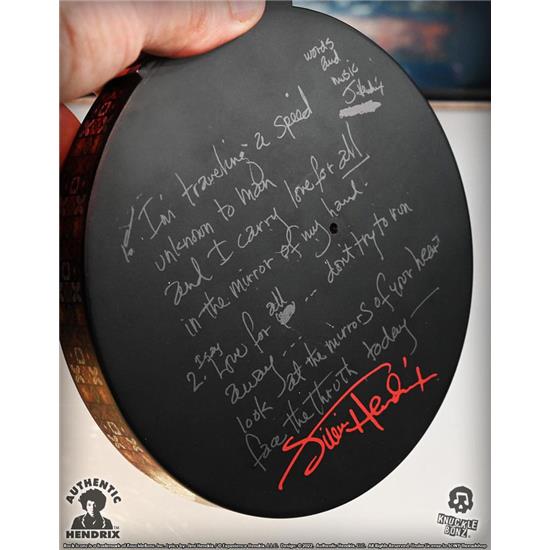 words
and
music
J. Hendrix
1. I'm traveling a speed
unknown to man
and I carry love for all
in the mirror of my hand.
2nd say Love for all -- don't try to run
away -- 
look at the mirrors of your hear
face the thruth today —
Jimi Hendrix
AUTHENTIC
HENDRIX™
KNUCKLE
BONZ®